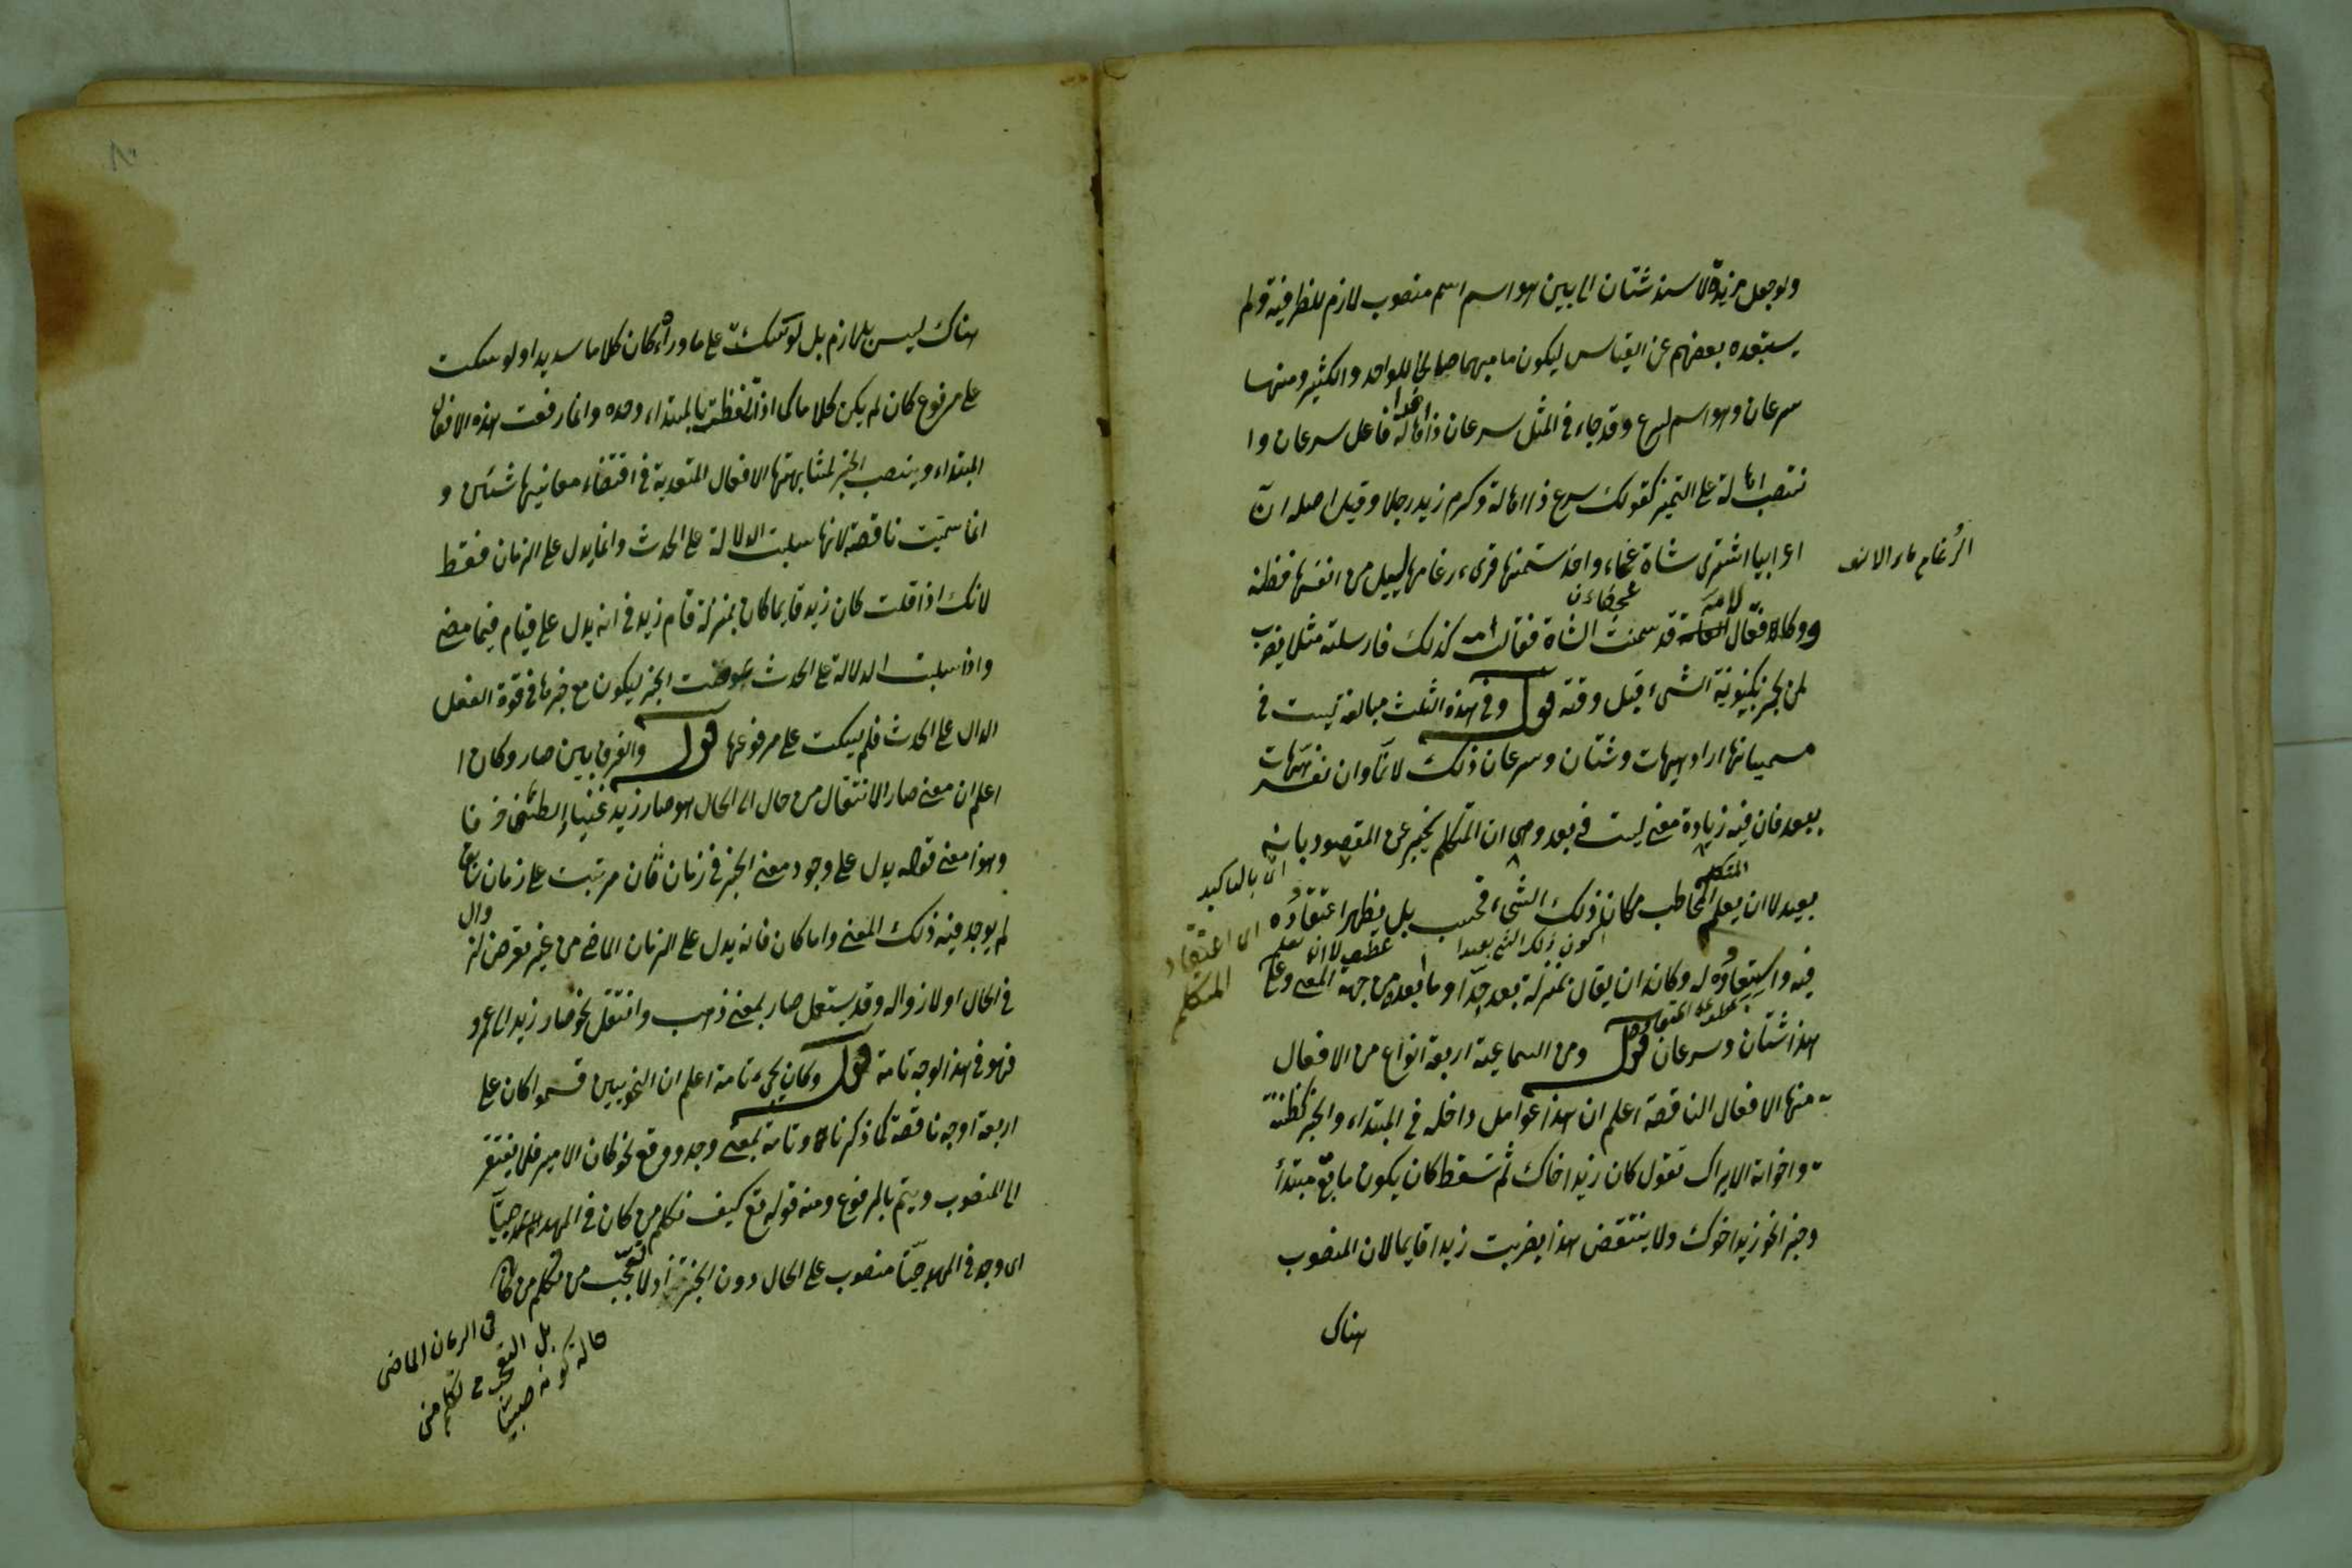 ولو جعل مزيدة لاسند شتان الى بين هو اسم اسم منصوب لازم للظرفية ولم
يستبعده بعضهم عن القياس ليكون ما مبهما صالحا للواحد والكثير ومنها
سرعان وهو اسم لسرع وقد جاء في المثل سرعان ذا اهالة فاعل سرعان وا
نتصب اهالة على التميز كقولك سرع ذا اهالة وكرم زيد رجلا وقيل اصله ان
اعرابيا اشترى شاة عجفاء واخذ سمنها فرى رغامها يسيل من انفها فظنه
الرغام ماء الانف
ودكا فقال لامه قد سمنت الشاة فقالت امه كذلك فارسلته مثلا يضرب
لمن يخبر بكينونة الشيء قبل وقته قوله وفي هذه الثلث مبالغة ليست في
مسمياتها اراد هيهات وشتان وسرعان ذلك لانا وان نفسر هيهات
ببعد فان فيه زيادة معنى ليست في بعد وهى ان المتكلم يخبر عن المقصود بانه
بعيد لا ان يعلم المخاطب مكان ذلك الشيء فحسب بل يظهر اعتقاده
المتكلم
اى بالتاكيد
اى اعتقاد
المتكلم
فيه واستبعاده له وكان ان يقال بمنزلة بعد جدا وما ابعده من جهة المعنى وعلى
كون ذلك الشيء بعيدا
عطف لا ان يعلم
هذا شتان وسرعان قوله ومن السماعية اربعة انواع من الافعال
عطف على اعتقاده
منها الافعال الناقصة اعلم ان هذا عوامل داخله في المبتداء والخبر كظننت
واخواته الايراك تقول كان زيد اخاك ثم تسقط كان يكون ما بقى مبتدأ
وخبر انحو زيد اخوك ولا ينتقض هذا بضربت زيدا قايما لان المنصوب
هناك
هناك ليس بلازم بل لو سكت على ما وراءه كان كلاما سديدا ولو سكت
على مرفوع كان لم يكن كلاما كما اذا تلفظت بالمبتداء وحده وانما رفعت هذه الافعال
المبتداء وينصب الخبر لمشابهتها الافعال المتعدية في اقتضاء معانيها شيئين و
انما سميت ناقصة لانها سلبت الدلالة على الحدث وانما يدل على الزمان فقط
لانك اذا قلت كان زيد قايما كان بمنزلة قام زيد في انه يدل على قيام فيما مضى
واذا سلبت الدلالة على الحدث عوضت الخبر ليكون مع خبرها في قوة الفعل
الدال على الحدث فلم يسكت على مرفوعها قوله والفرق بين صار وكان ا
اعلم ان معنى صار الانتقال من حال الى الحال هو صار زيد غنيا والطين خزفا
وهذا معنى قوله يدل على وجود معنى الخبر في زمان ثان مرتبت على زمان سابق
لم يوجد فيه ذلك المعنى واما كان فانه يدل على الزمان الماضى من غير تعرض لزوال
في الحال او لا زواله وقد يستعمل صار بمعنى ذهب وانتقل نحو صار زيد الى عمرو
فهو في هذا الوجه تامة قوله وكان يجيء تامة اعلم ان النحويين قسموا كان على
اربعة اوجه ناقصة كما ذكرنا وتامة بمعنى وجد ووقع نحو كان الامير فلا يفتقر
الى المنصوب ويتم بالمرفوع ومنه قوله تع كيف نكلم من كان في المهد صبيا
اى وجد في المهد صبيا منصوب على الحال دون الخبرية اذ لا تعجب من تكلم من كان
في الزمان الماضى
بل التعجب من تكلم من
حاله كونه صبيا